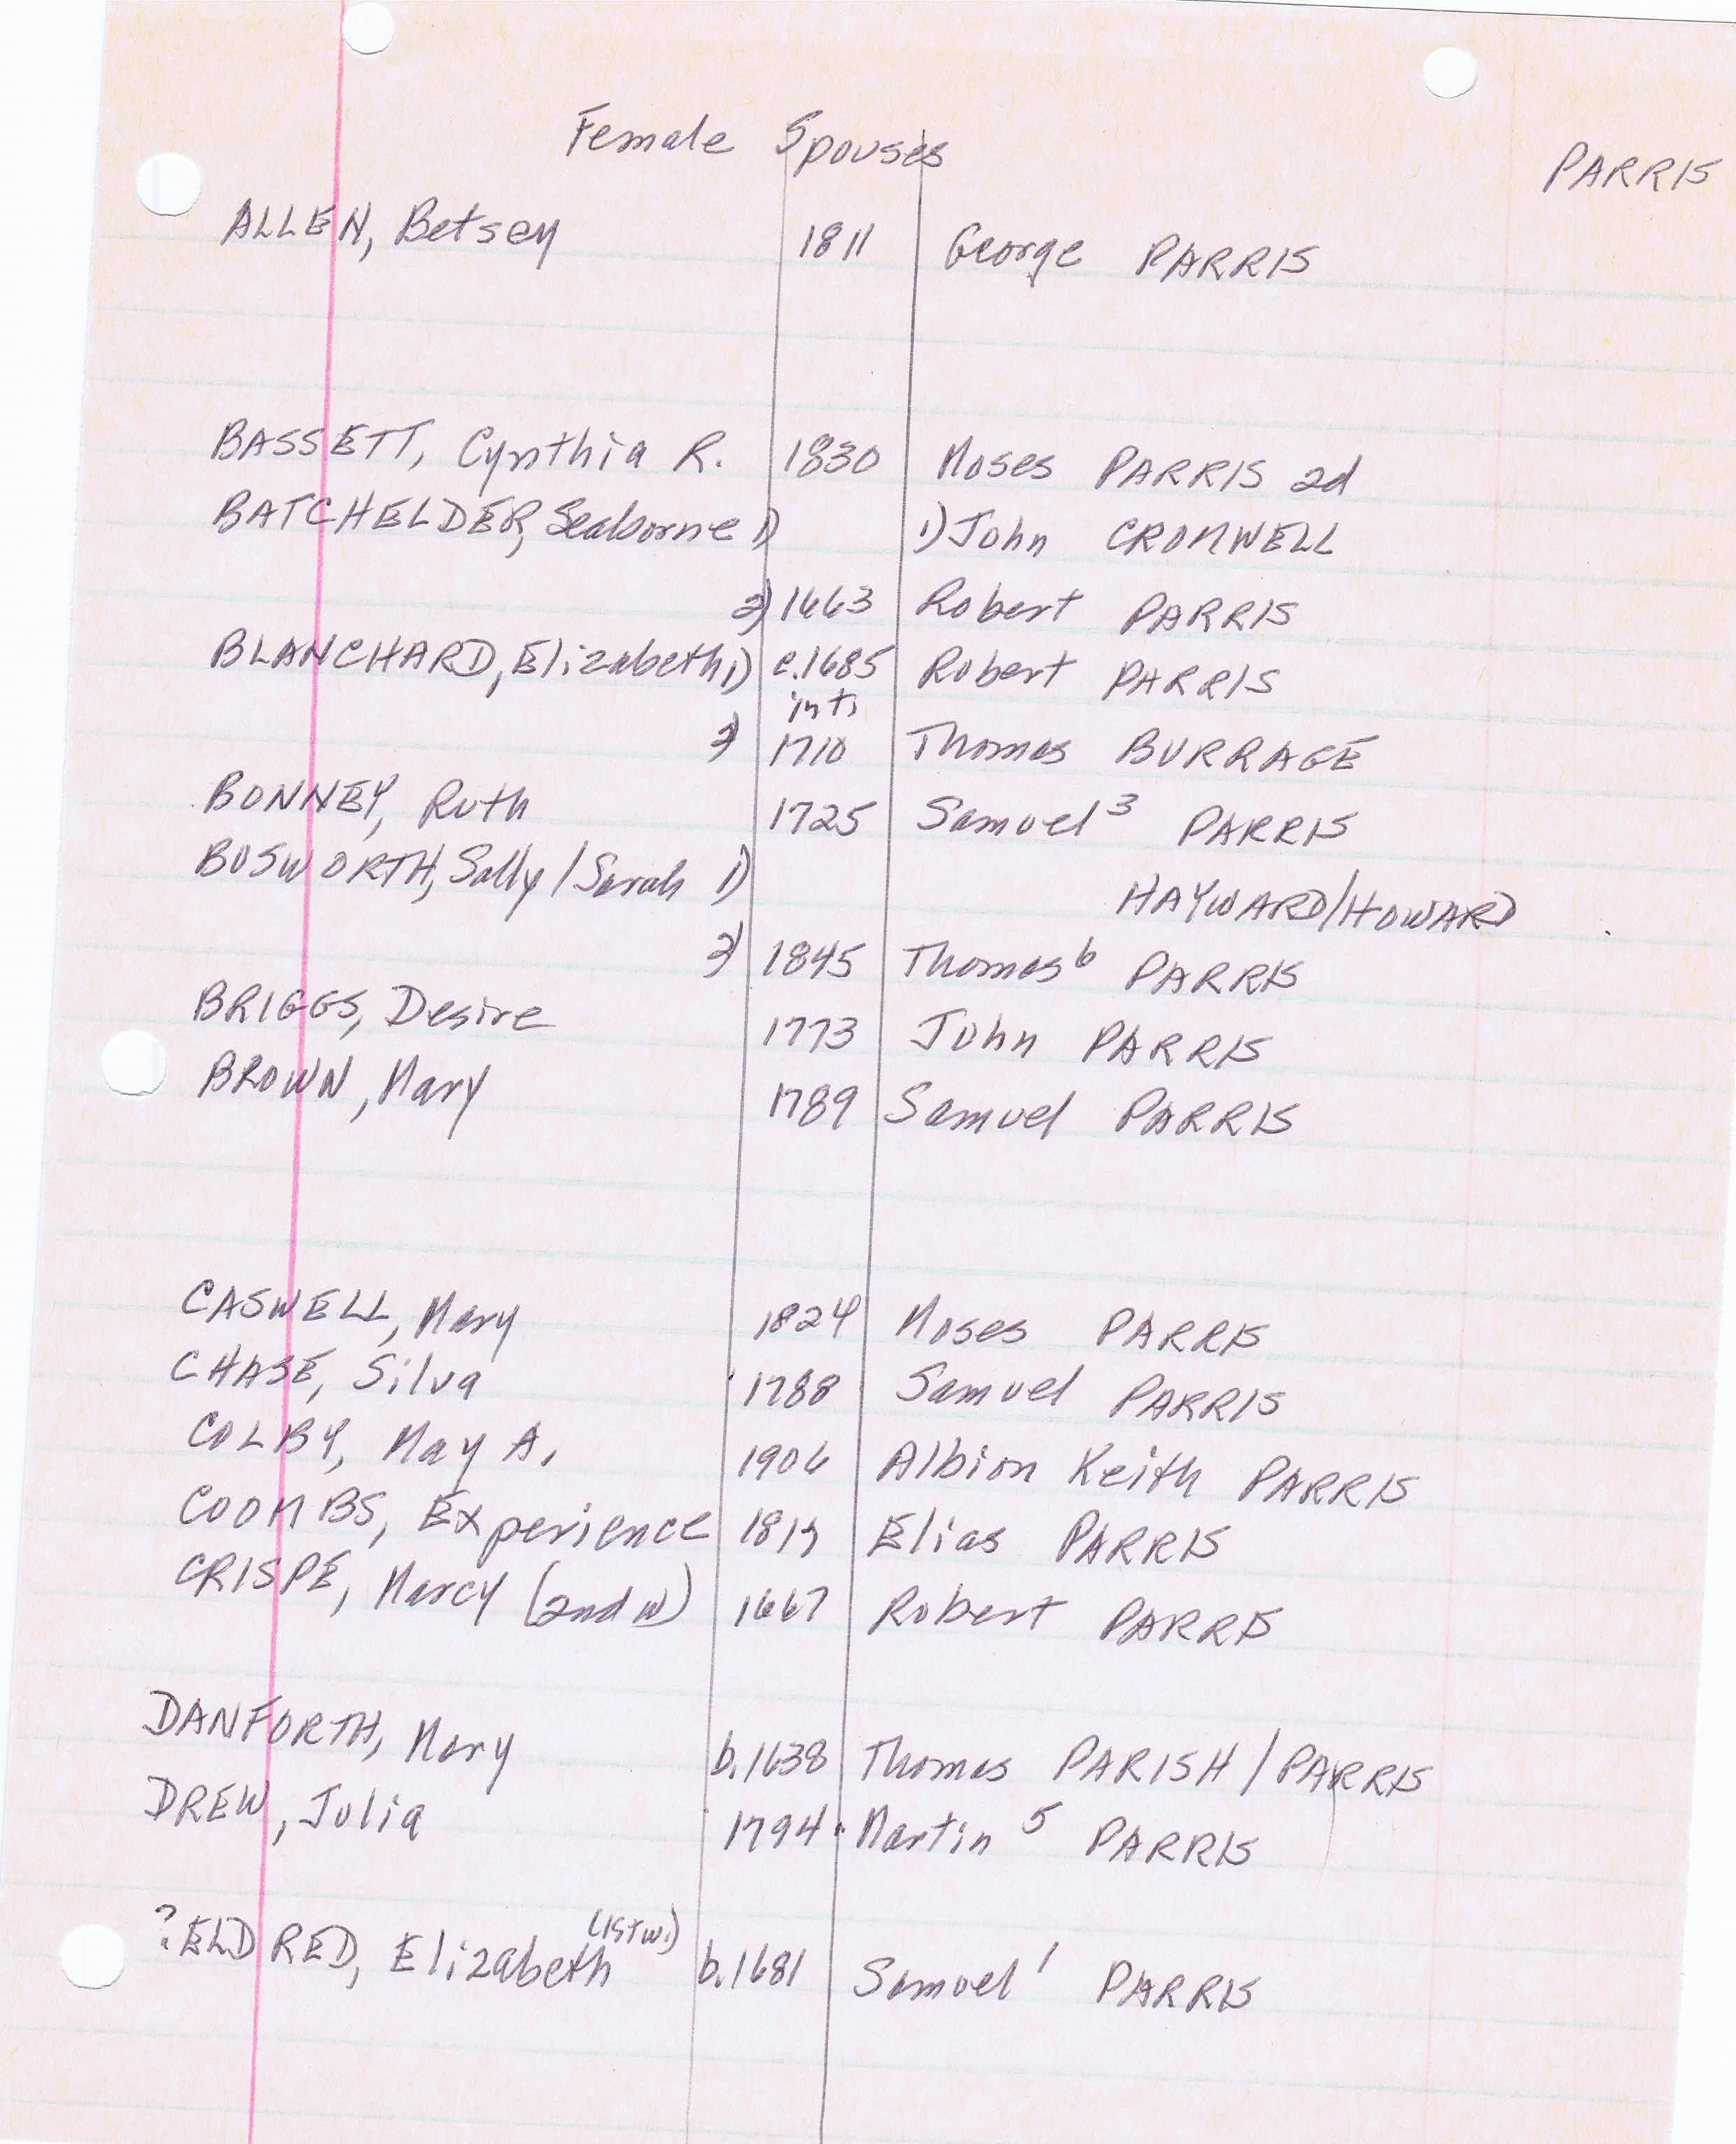 Female Spouses
PARRIS
ALLEN, Betsey 1811 George PARRIS
BASSETT, Cynthia R. 1830 Moses PARRIS 2d
BATCHELDER, Seaborne 1) 1) John CROMWELL
2) 1663 Robert PARRIS
BLANCHARD, Elizabeth 1) c.1685 Robert PARRIS
int.
2) 1710 Thomas BURRAGE
BONNEY, Ruth 1725 Samuel³ PARRIS
BOSWORTH, Sally/Sarah 1) HAYWARD/HOWARD
2) 1845 Thomas⁶ PARRIS
BRIGGS, Desire 1773 John PARRIS
BROWN, Mary 1789 Samuel PARRIS
CASWELL, Mary 1824 Moses PARRIS
CHASE, Silva 1788 Samuel PARRIS
COLBY, May A. 1906 Albion Keith PARRIS
COOMBS, Experience Elias PARRIS
CRISPE, Marcy (2nd w) 1667 Robert PARRIS
DANFORTH, Mary b.1638 Thomas PARISH/PARRIS
DREW, Julia 1794 Martin⁵ PARRIS
(1st w.)
?ELDRED, Elizabeth b.1681 Samuel¹ PARRIS